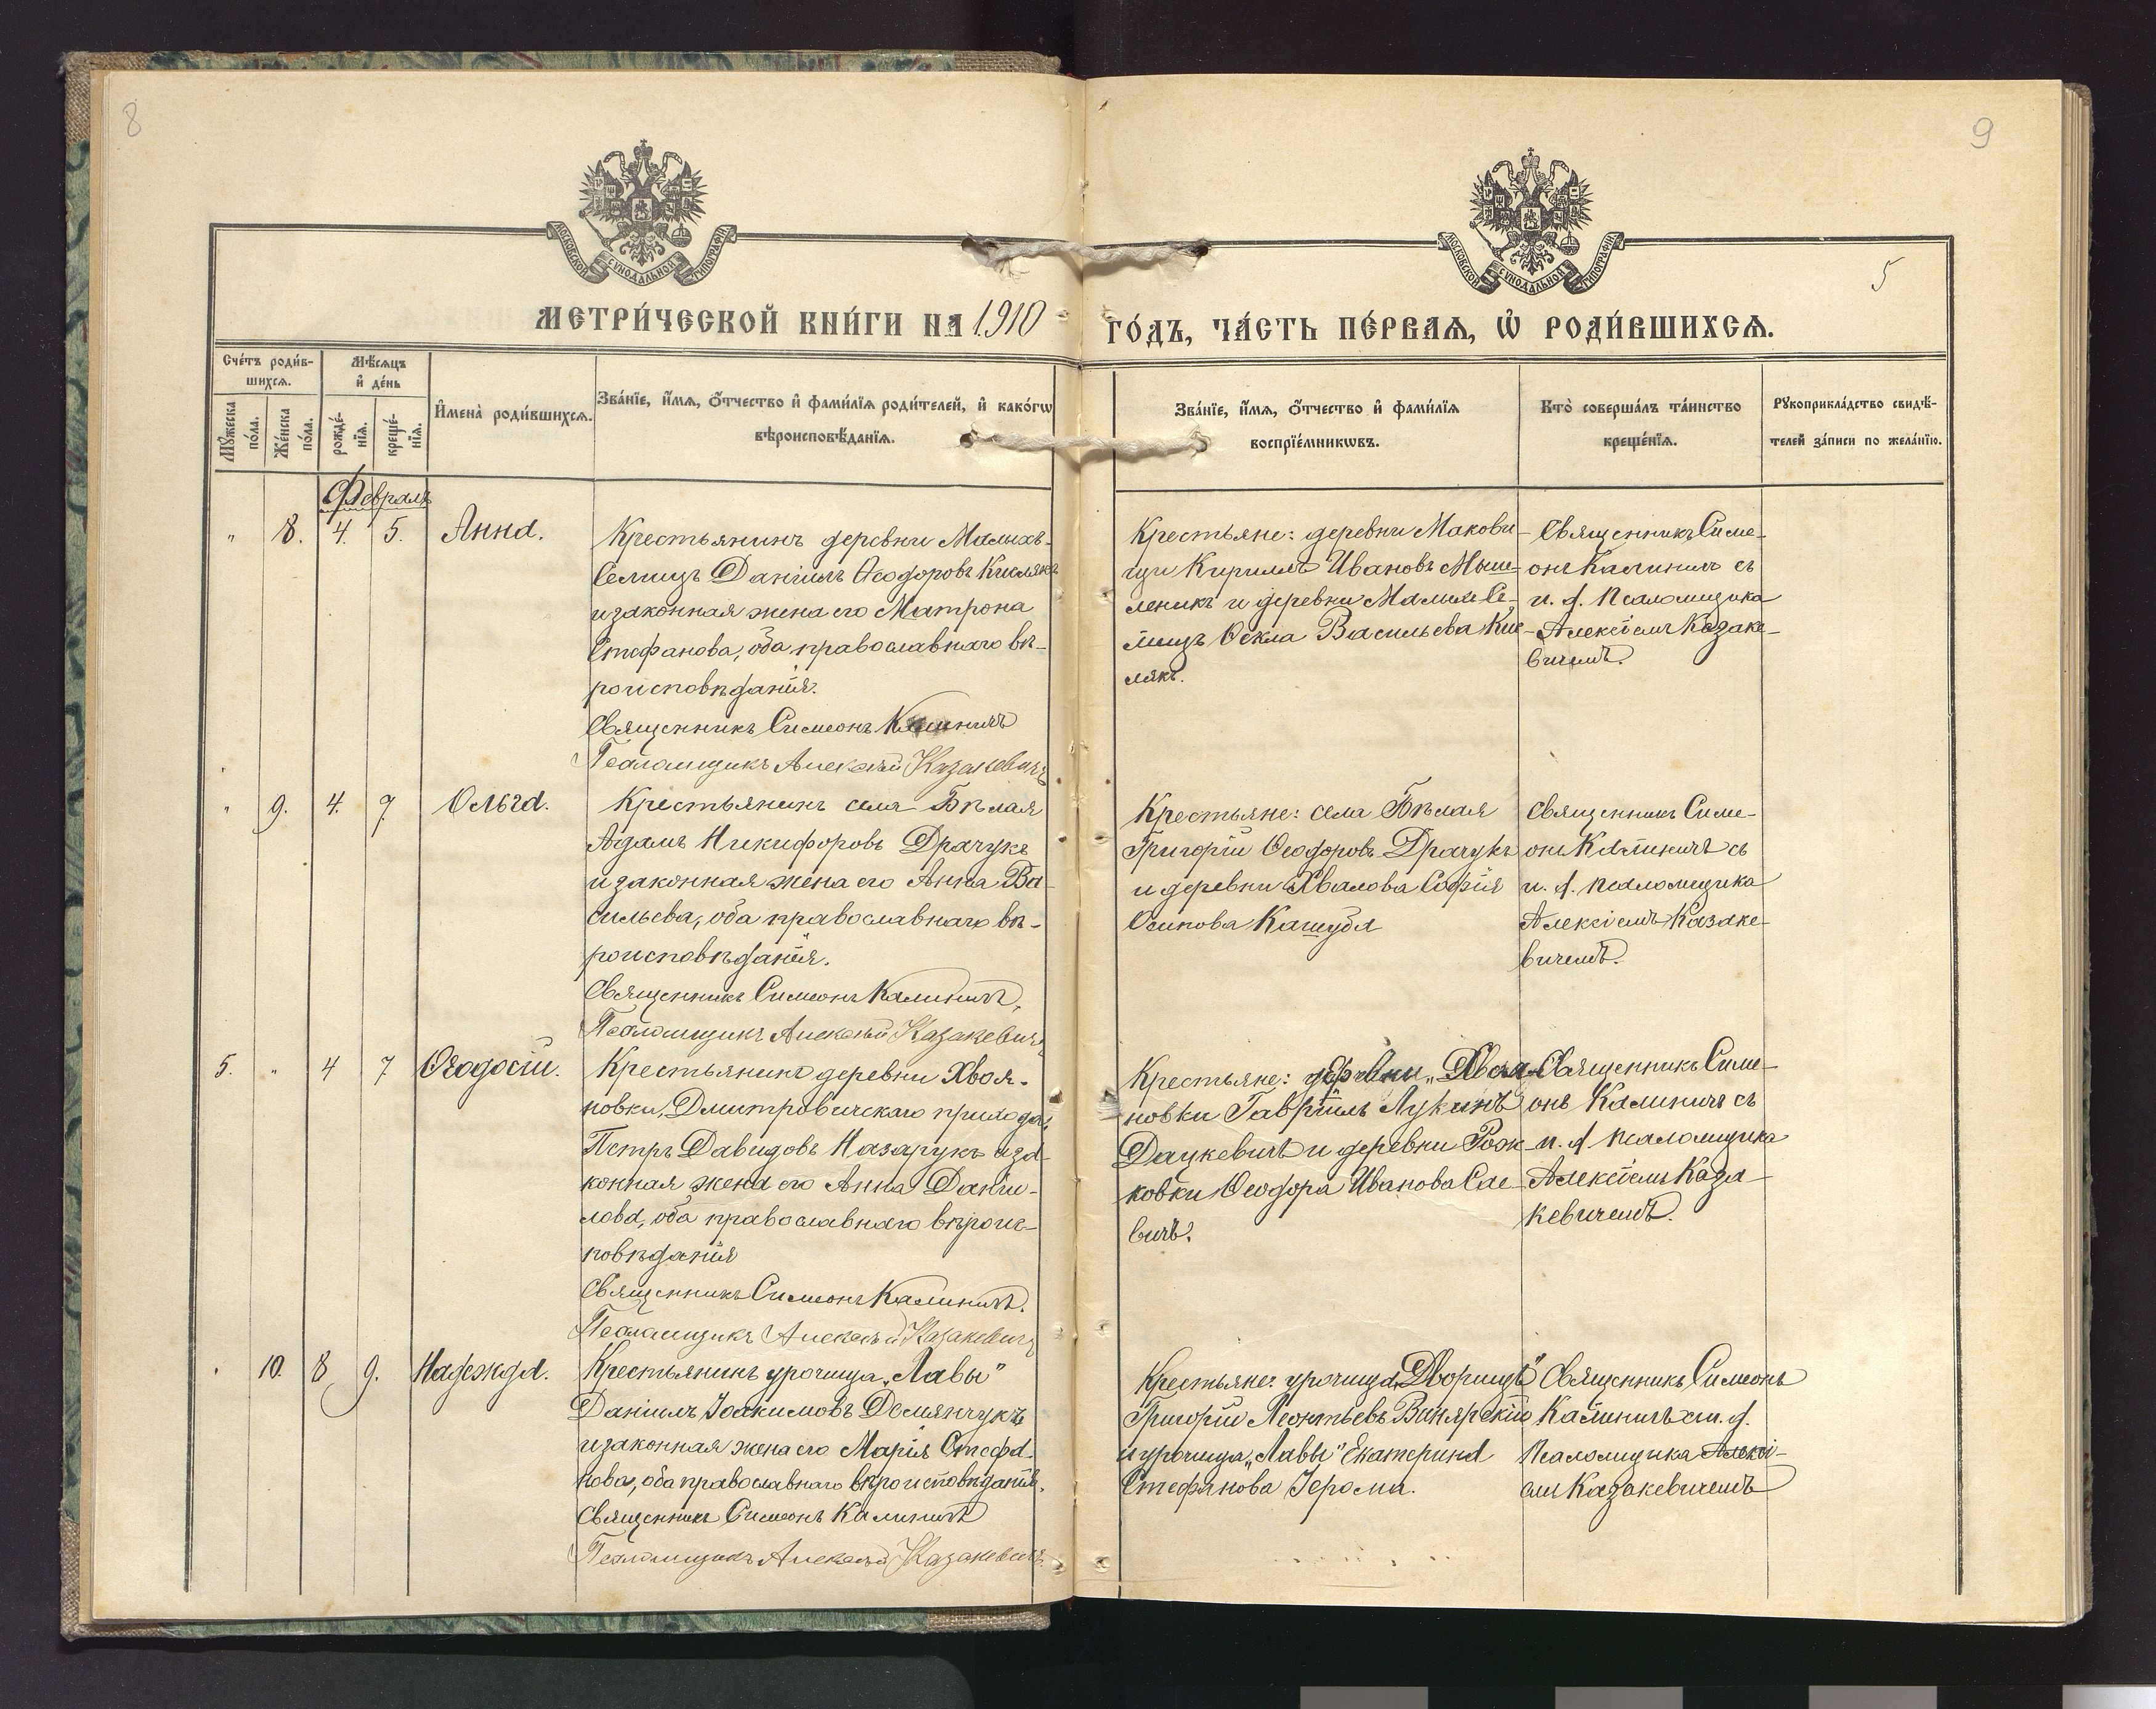 8
9
МОСКОВСКОЙ СѴНОДАЛЬНОЙ ТИПОГРАФІИ
МОСКОВСКОЙ СѴНОДАЛЬНОЙ ТИПОГРАФІИ
5
МЕТРИ́ЧЕСКОЙ КНИ́ГИ НА 1910
ГО́ДЪ, ЧА́СТЬ ПЕ́РВАѦ, Ѡ҆ РОДИ́ВШИХСѦ.
Сче́тъ роди́в-
шихсѧ.
Мѣ́сѧцъ
и҆ де́нь
Мꙋ́жеска
по́ла.
Же́нска
по́ла.
рожде́-
нїѧ.
креще́-
нїѧ.
И҆мена̀ роди́вшихсѧ.
Зва́нїе, и҆́мѧ, ѻ҆́тчество и҆ фами́лїѧ роди́телей, и҆ како́гѡ
вѣроисповѣ́данїѧ.
Зва́нїе, и҆́мѧ, ѻ҆́тчество и҆ фами́лїѧ
воспрїе́мникѡвъ.
Кто̀ соверша́лъ та́инство
креще́нїѧ.
Рꙋкоприкла́дство свидѣ́-
телей за́писи по жела́нїю.
Февраль
" 8. 4. 5. Анна.
Крестьянинъ деревни Малыхъ-
Селищъ Даніилъ Ѳеодоровъ Кислякъ
и законная жена его Матрона
Стефанова, оба православнаго вѣ-
роисповѣданія.
Священникъ Симеонъ Калиничъ
Псаломщикъ Алексѣй Казакевичъ
Крестьяне: деревни Макови-
щи Кириллъ Ивановъ Мыш-
леникъ и деревни Малыя Се-
лищъ Ѳекла Васильева Кис-
лякъ.
Священникъ Симе-
онъ Калиничъ съ
и. д. псаломщика
Алексіемъ Казаке-
вичемъ.
" 9. 4. 7 Ольга.
Крестьянинъ села Бѣлая
Адамъ Никифоровъ Драчукъ
и законная жена его Анна Ва-
сильева, оба православнаго вѣ-
роисповѣданія.
Священникъ Симеонъ Калиничъ.
Псаломщикъ Алексѣй Казакевичъ
Крестьяне: села Бѣлая
Григорій Ѳеодоровъ Драчукъ
и деревни Хвалова Софія
Осипова Кашуба
Священникъ Симе-
онъ Калиничъ съ
и. д. псаломщика
Алексіемъ Казаке-
вичемъ.
5. " 4 7 Ѳеодосій.
Крестьянинъ деревни Хвоя-
новки, Дмитровичскаго прихода,
Петръ Давидовъ Назарукъ и за-
конная жена его Анна Даніи-
лова, оба православнаго вѣроис-
повѣданія
Священникъ Симеонъ Калиничъ.
Псаломщикъ Алексѣй Казакевичъ
Крестьяне: деревни "Хвоя-
новки Гавріилъ Лукинъ
Дацкевичъ и деревни Рож-
ковки Ѳеодора Иванова Сае-
вичъ.
Священникъ Симе-
онъ Калиничъ съ
и. д. псаломщика
Алексіемъ Каза-
кевичемъ.
10. 8 9. Надежда.
Крестьянинъ урочища "Лавы"
Даніилъ Іоакимовъ Демянчукъ
и законная жена его Марія Стефа-
нова, оба православнаго вѣроисповѣданія.
Священникъ Симеонъ Калиничъ
Псаломщикъ Алексѣй Казакевичъ.
Крестьяне: урочища "Дворищъ"
Григорій Леонтьевъ Винярскій
и урочища "Лавы" Екатерина
Стефанова Герома.
Священникъ Симеонъ
Калиничъ съ и. д.
псаломщика Алексі-
емъ Казакевичемъ